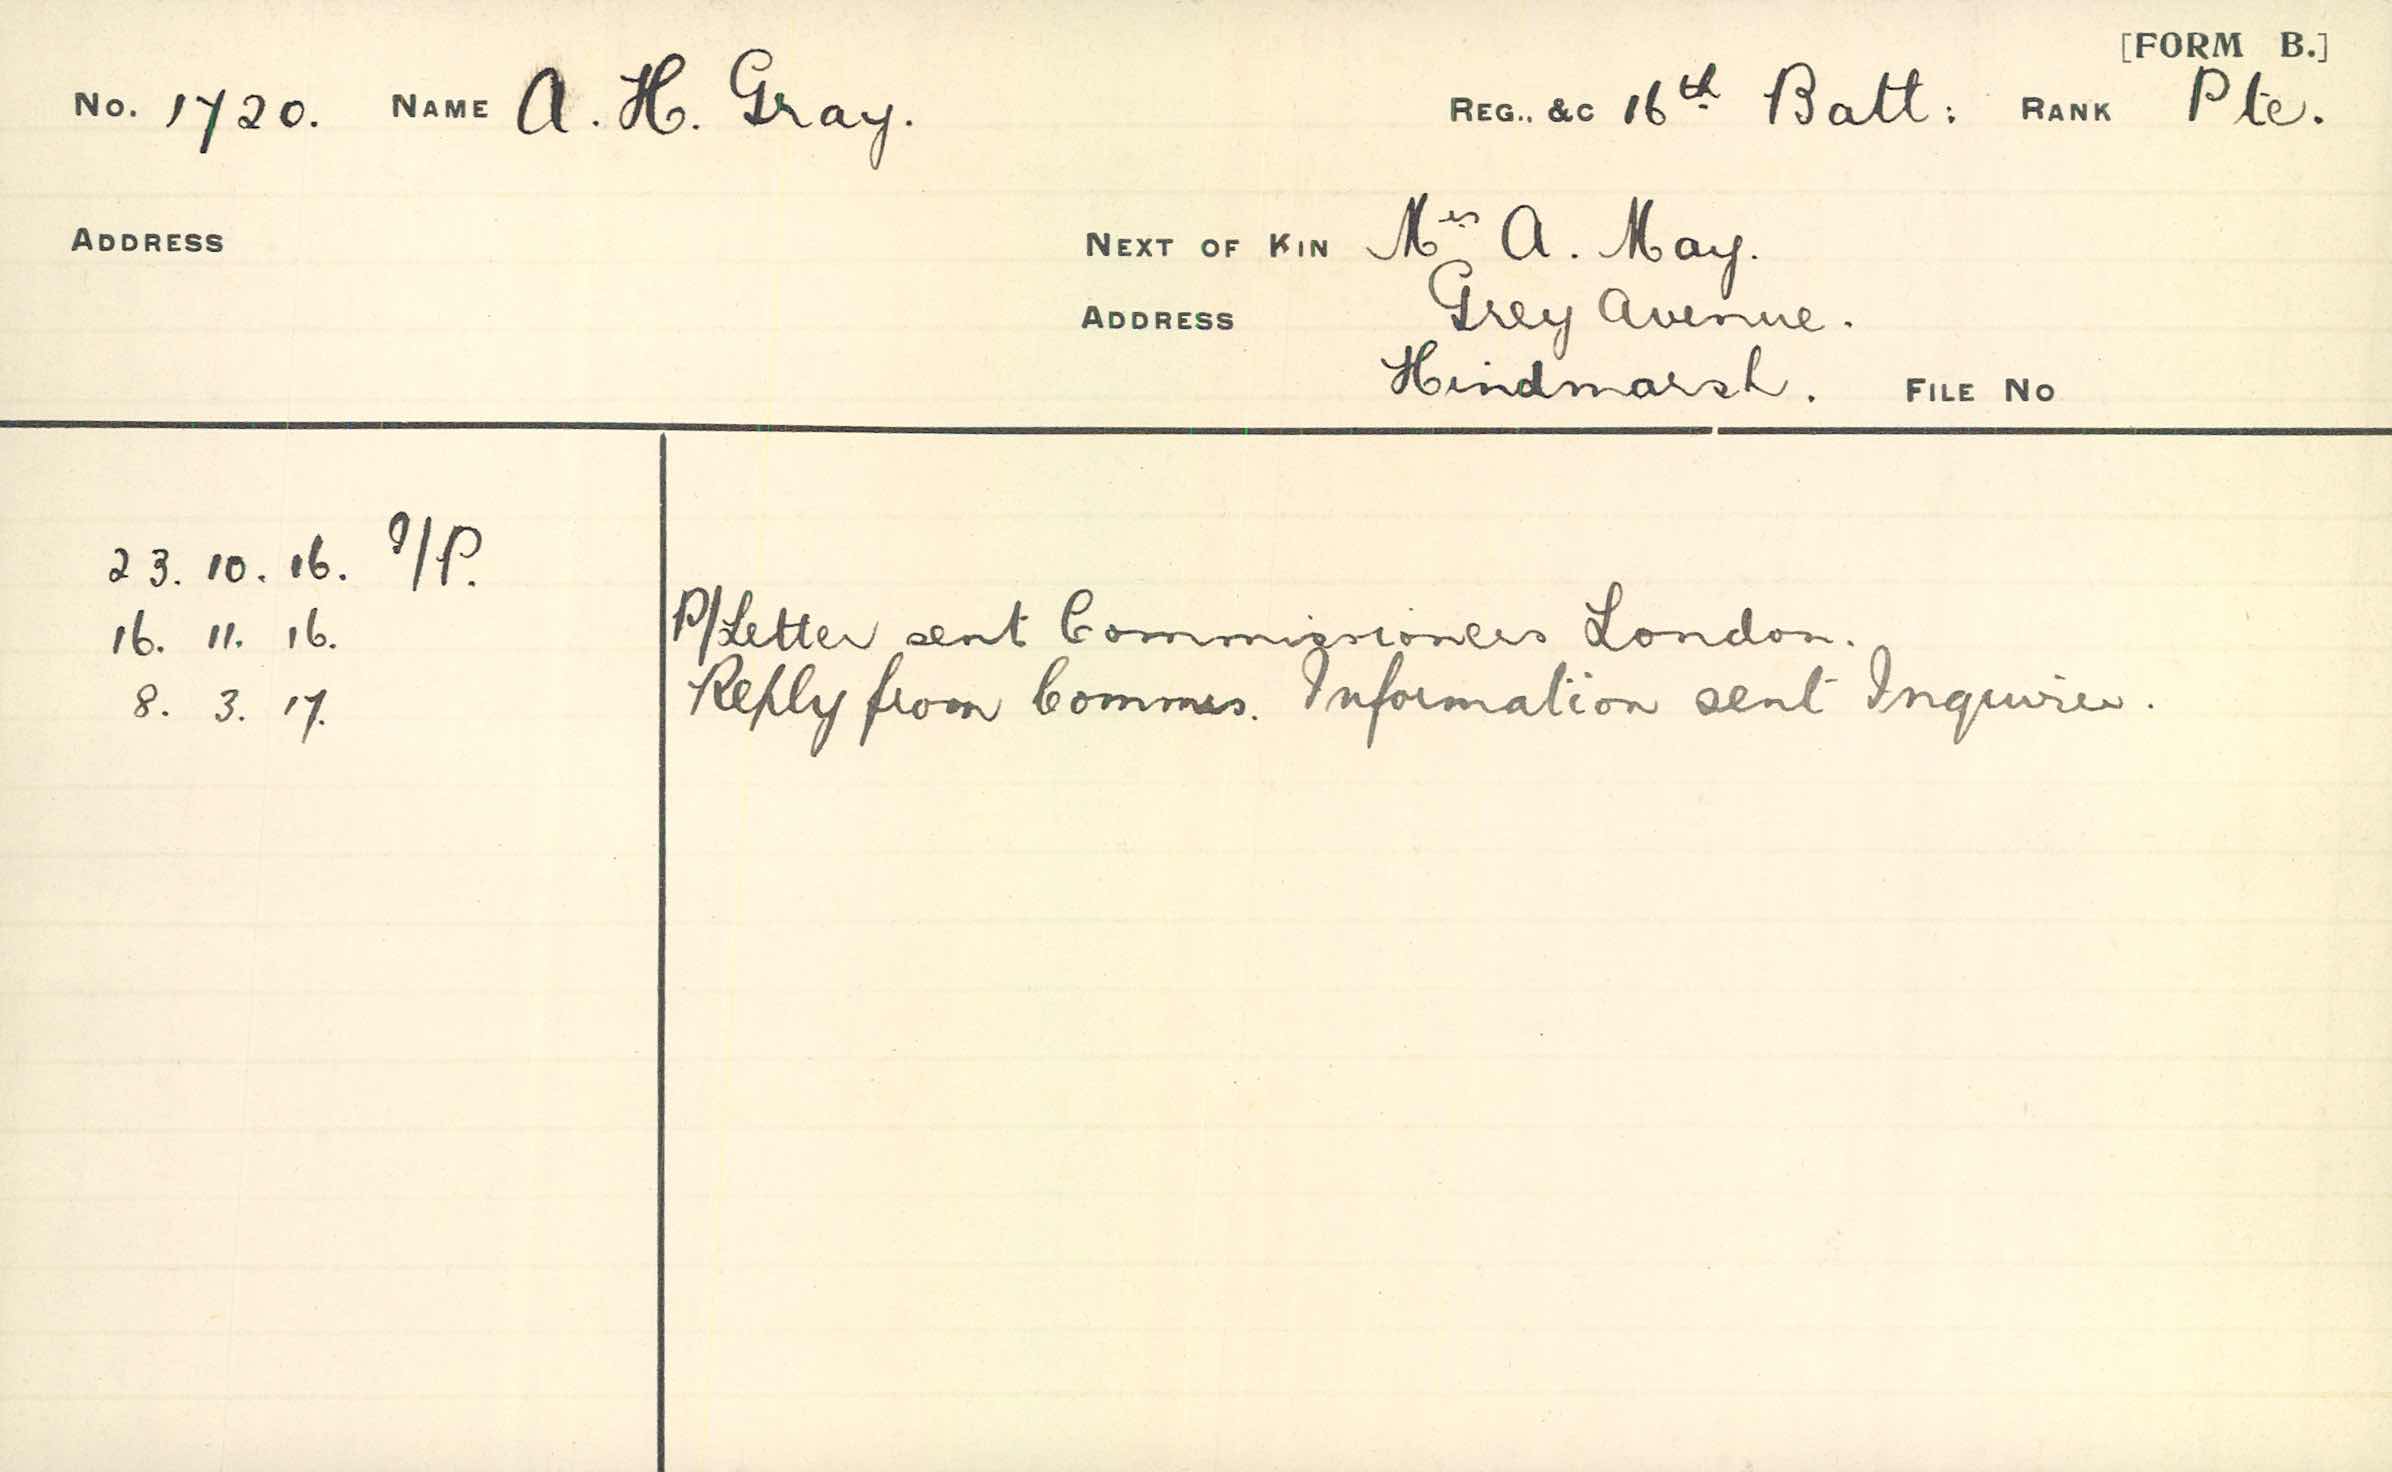 [FORM B.]
No. 1720. NAME A. H. Gray. REG., &C 16th Batt: RANK Pte.
ADDRESS NEXT OF KIN Mrs A. May.
ADDRESS Grey Avenue.
Hindmarsh. FILE NO
23. 10. 16. I/P.
16. 11. 16. P/Letter sent Commissioners London.
8. 3. 17. Reply from Commrs. Information sent Inquirer.